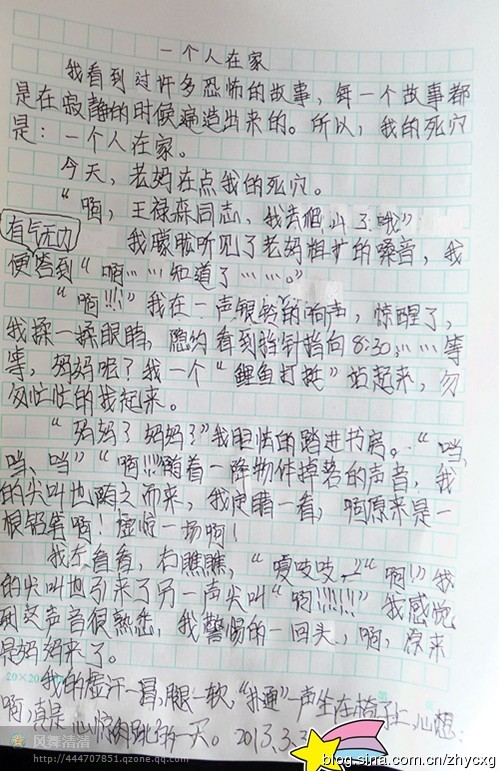 一个人在家
我看到过许多恐怖的故事，每一个故事都
是在寂静的时候遍造出来的。所以，我的死穴
是：一个人在家。
今天，老妈在点我的死穴。
“啊，王禄森同志，我去爬山了哦”
有气无力
我朦胧听见了老妈粗犷的嗓音，我
便答到“啊……知道了……。”
“啊!!!”我在一声的响声，惊醒了，
我揉一揉眼睛，隐约看到指针指向8:30……等
等，妈妈呢？我一个“鲤鱼打挺”站起来，匆
匆忙忙的找起来。
“妈妈？妈妈？”我胆怯的踏进书房。“当、
当、当”“啊!!!”随着一阵物件掉落的声音，我
的尖叫也随之而来，我定睛一看，啊原来是一
根铅笔啊！虚惊一场啊！
我左看看，右瞧瞧，“嘎吱吱”“啊!!”我
的尖叫也引来了另一声尖叫“啊!!!!!”我感觉
到这声音很熟悉，我警惕的一回头，啊，原来
是妈妈来了。
20×20
我的虚汗一冒，腿一软“扑通”一声坐在椅子上，心想：
啊，真是心惊肉跳的一天。2013.3.3
风舞清清
http://444707851.qzone.qq.com
blog.sina.com.cn/zhycxg